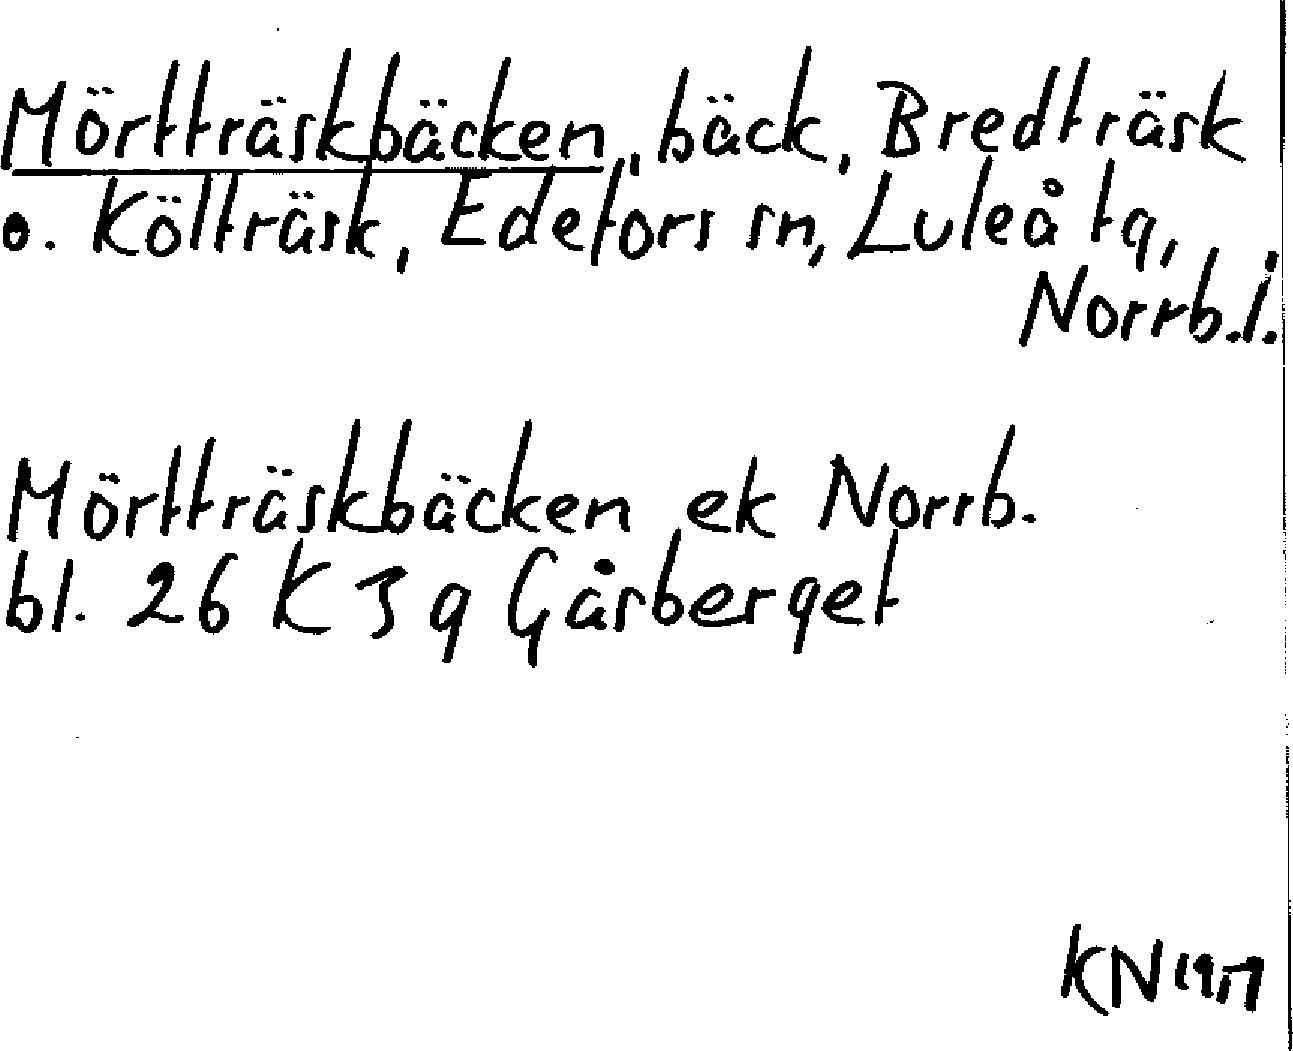 Mörtträskbäcken, bäck, Bredträsk
o. Költräsk, Edefors sn, Luleå tg,
Norrb.l.
Mörtträskbäcken ek Norrb.
bl. 26 K 3 g Gåsberget
KN